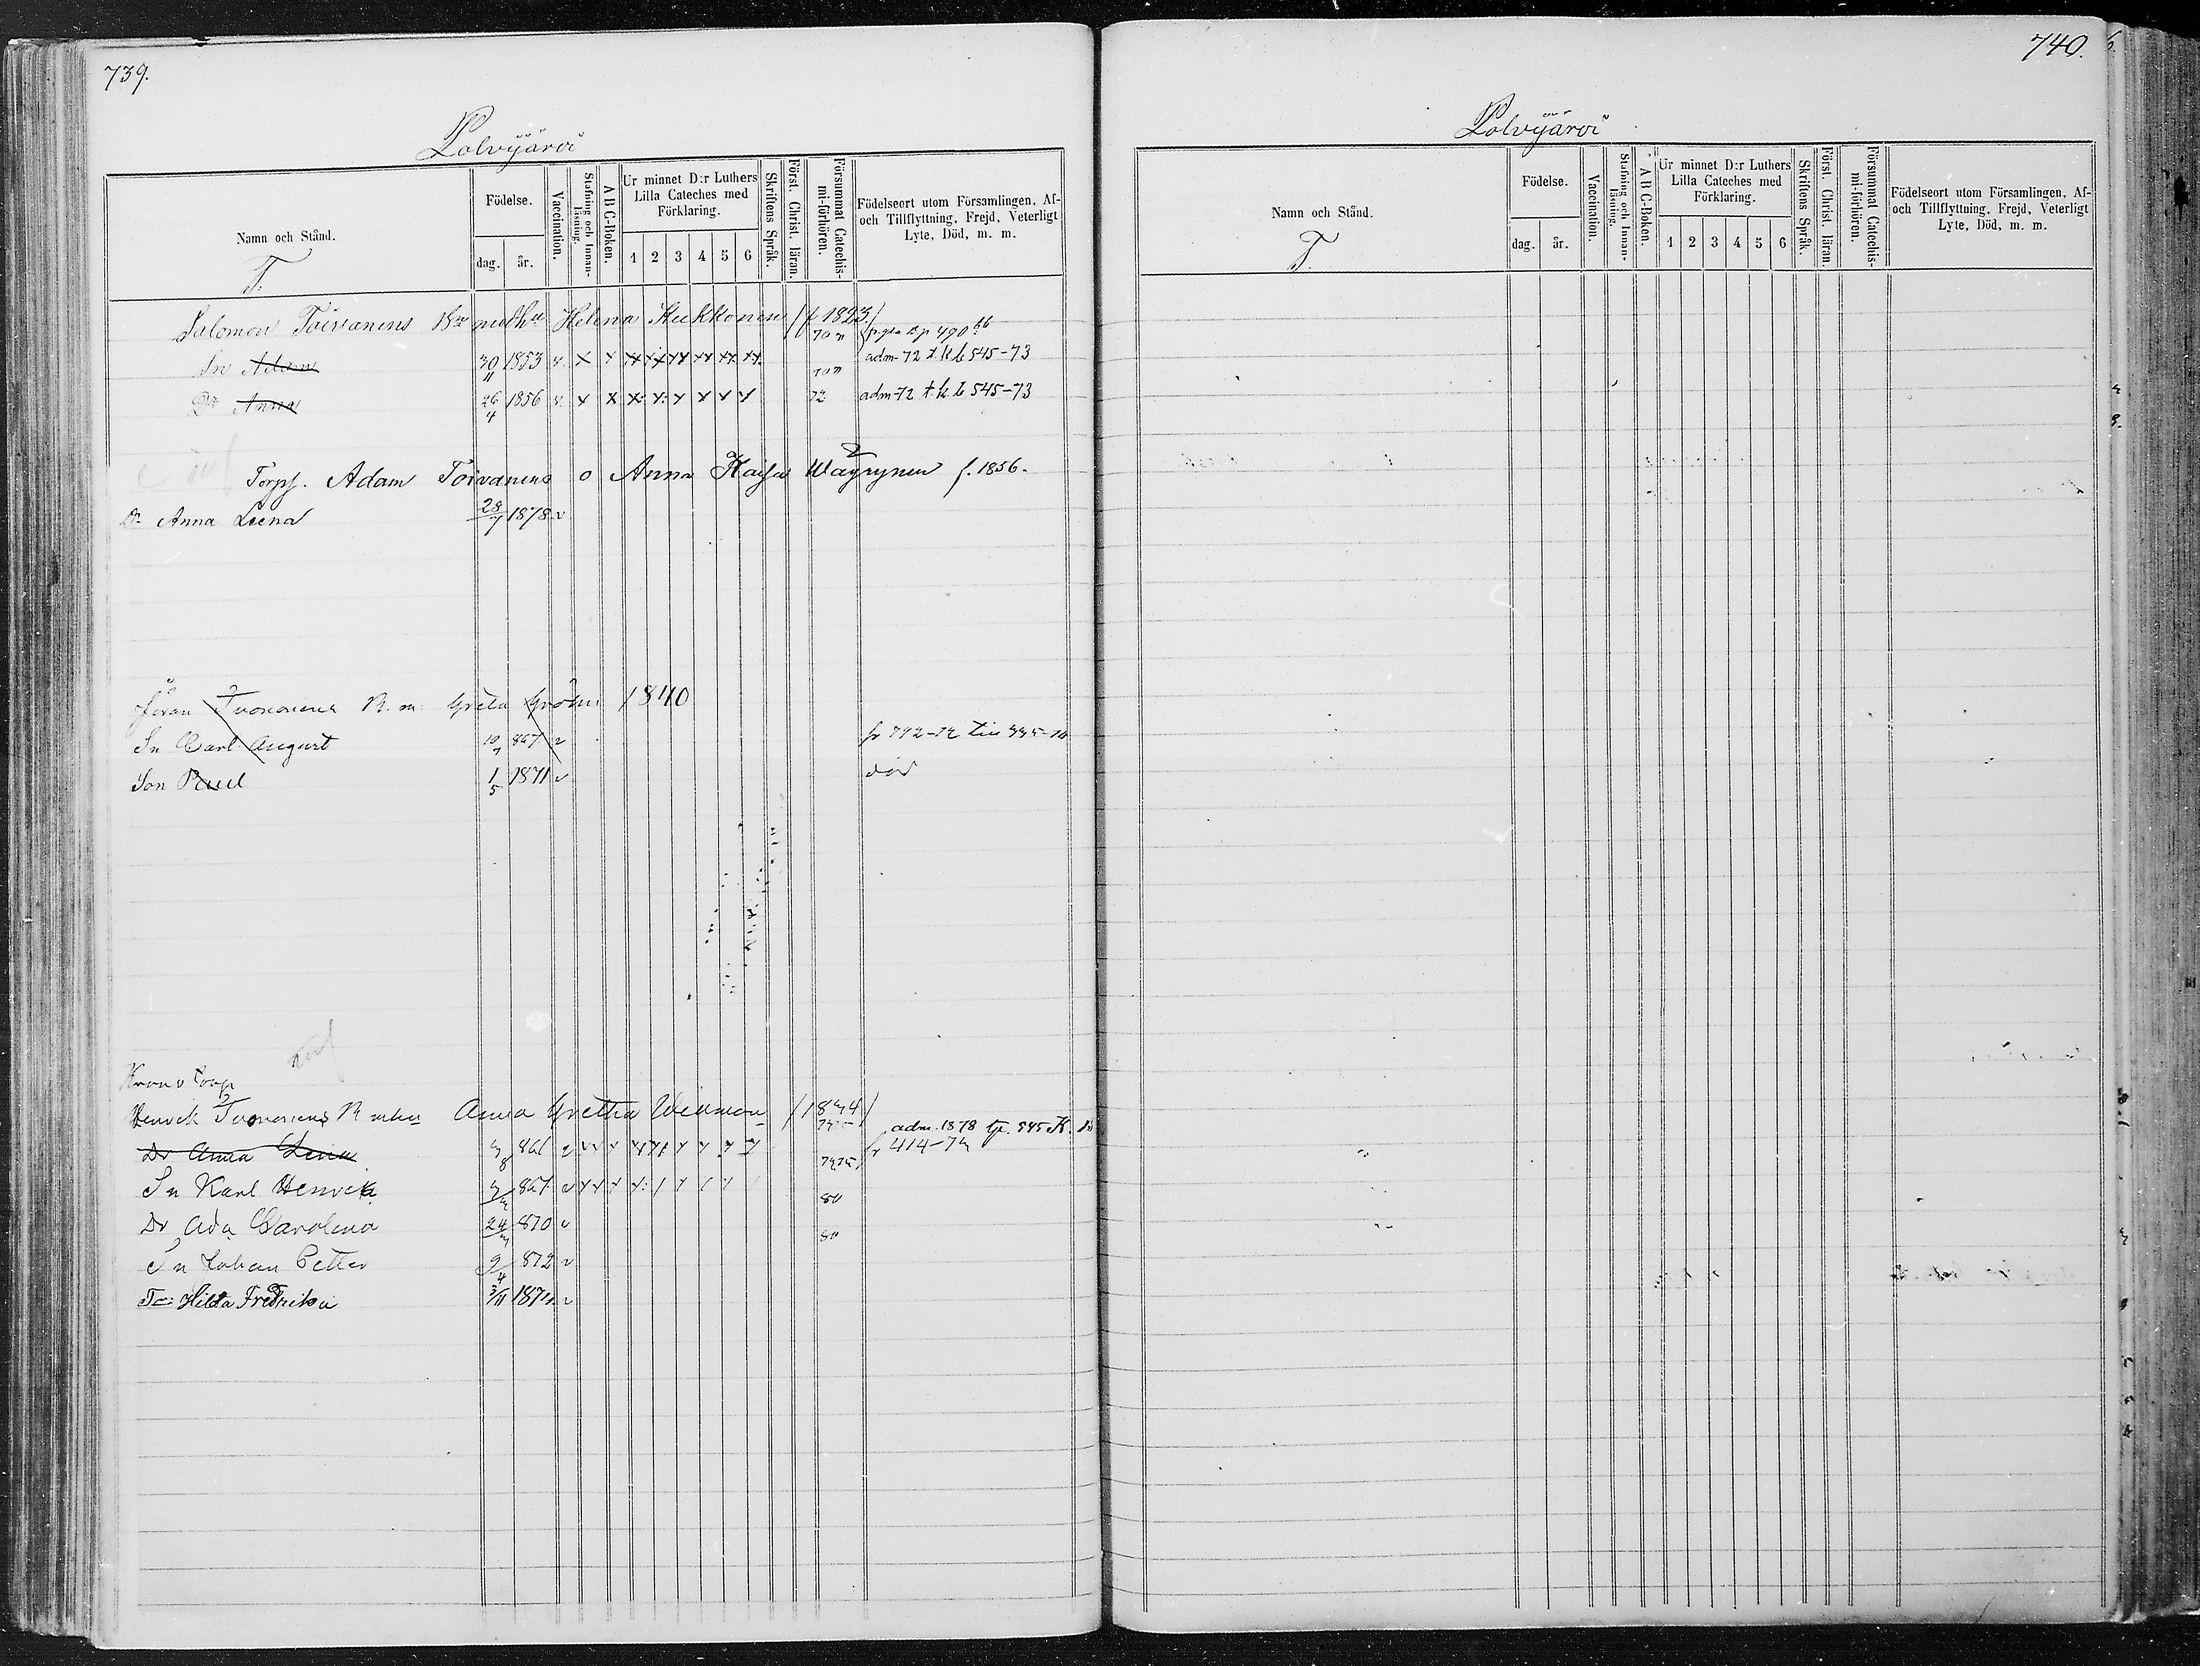 739.
Polvijärvi
Namn och Stånd.
T.
Födelse.
dag. år.
Vaccination.
Stafning och Innan-läsning.
A B C-Boken.
Ur minnet D:r Luthers Lilla Cateches med Förklaring.
1 2 3 4 5 6
Skriftens Språk.
Först. Christ. läran.
Försummat Catechis-mi-förhören.
Födelseort utom Församlingen, Af- och Tillflyttning, Frejd, Veterligt Lyte, Död, m. m.
Salomon Toivanens Helena Kukkonen (f 1823)
Sn Adam 30/11 1853 v. adm-72 t. k. b 545-73
Dr Anna 26/4 1856 v. 72 adm-72 t. k. b 545-73
Torp. Adam Toivanens o Anna Kaisa Wäyrynen f. 1856.
Dr Anna Leena 28/7 1878 v
Göran Tuononens B. m. Greta 1840
Sn Carl August 10/7 867 v
Son Paul 1/5 1871 v död
Krono torp
Henrik Tuononens Anna Gretha (1834)
adm. 1878
Dr Anna Lena 3/8 861 v fr 414-73
Sn Karl Henrik 867 v 80
Dr Ada Carolina 24/3 870 v 80
Sn Johan Petter 9/4 872 v
Tr Hilda Fredrika 3/11 1874 v
740.
Polvijärvi
Namn och Stånd.
T.
Födelse.
dag. år.
Vaccination.
Stafning och Innan-läsning.
A B C-Boken.
Ur minnet D:r Luthers Lilla Cateches med Förklaring.
1 2 3 4 5 6
Skriftens Språk.
Först. Christ. läran.
Försummat Catechis-mi-förhören.
Födelseort utom Församlingen, Af- och Tillflyttning, Frejd, Veterligt Lyte, Död, m. m.